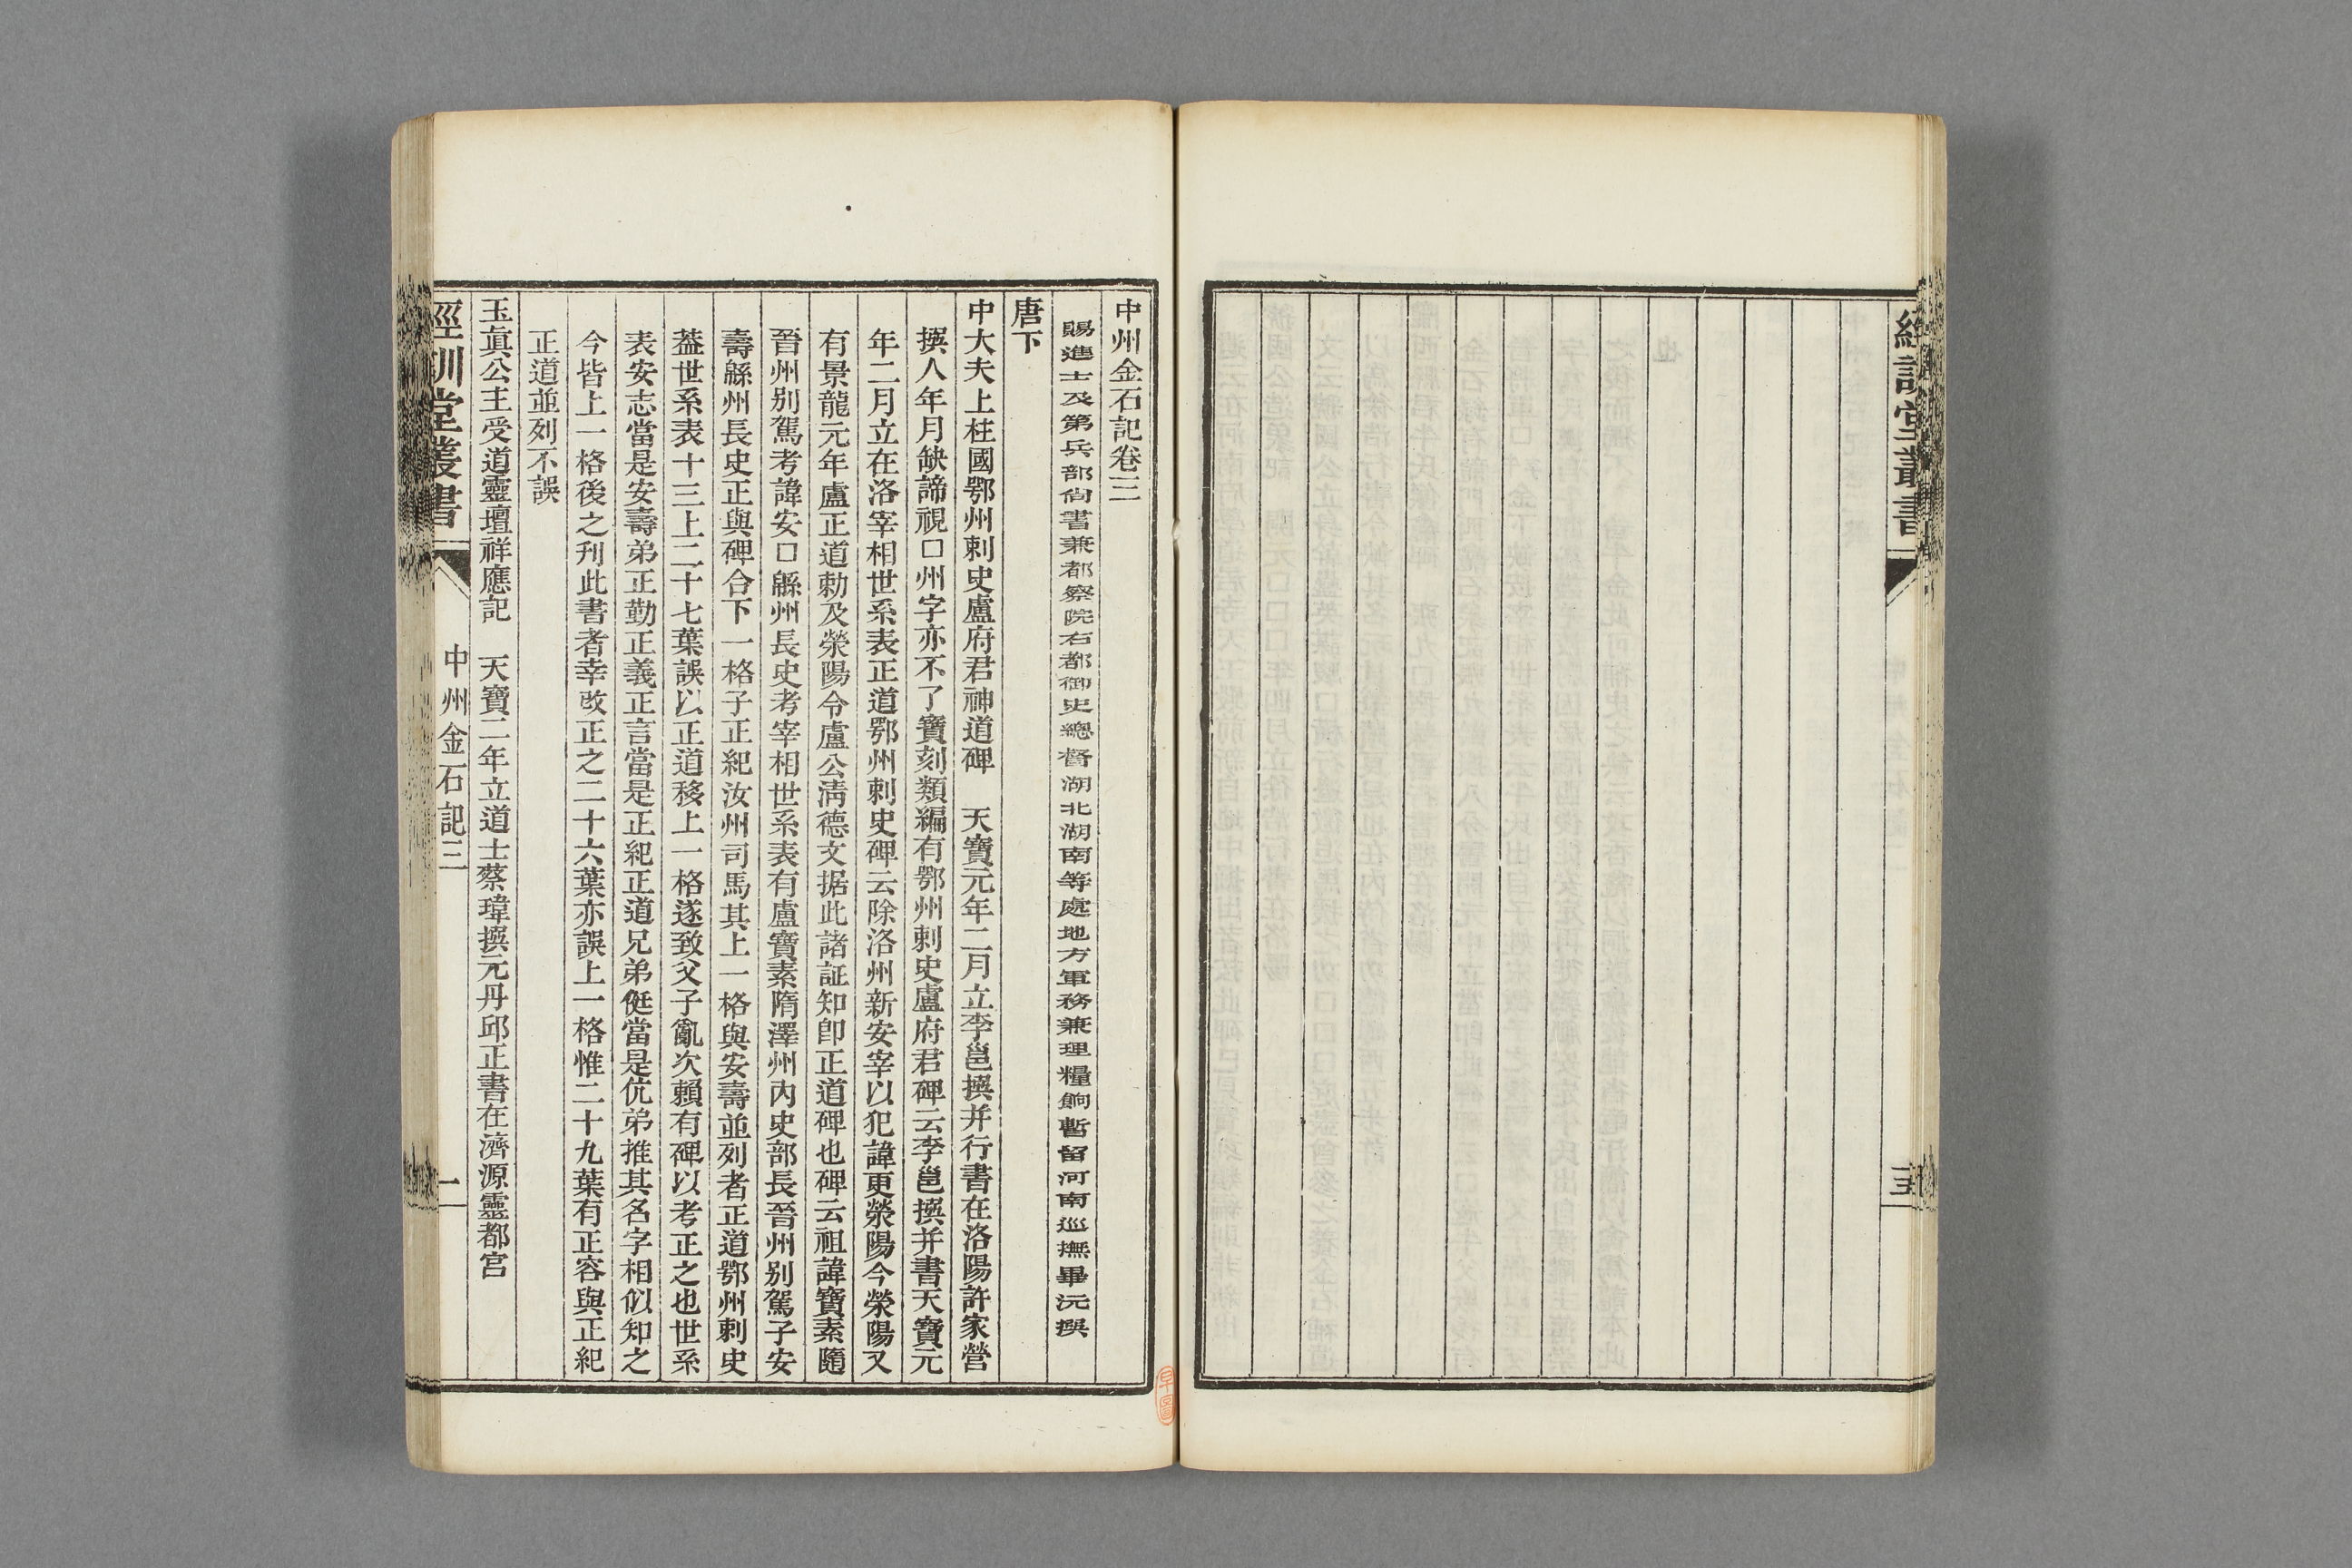 經訓堂叢書
中州金石記卷三
賜進士及第兵部尙書兼都察院右都御史總督湖北湖南等處地方軍務兼理糧餉暫留河南巡撫畢沅撰
唐下
中大夫上柱國鄂州刺史盧府君神道碑　天寶元年二月立李邕撰并行書在洛陽許家營
撰人年月缺諦視口州字亦不了寶刻類編有鄂州刺史盧府君碑云李邕撰并書天寶元
年二月立在洛宰相世系表正道鄂州刺史碑云除洛州新安宰以犯諱更滎陽今滎陽又
有景龍元年盧正道勅及滎陽令盧公淸德文据此諸証知卽正道碑也碑云祖諱寶素隨
晉州别駕考諱安口緜州長史考宰相世系表有盧寶素隋澤州內史部長晉州别駕子安
壽緜州長史正與碑合下一格子正紀汝州司馬其上一格與安壽並列者正道鄂州刺史
葢世系表十三上二十七葉誤以正道移上一格遂致父子亂次賴有碑以考正之也世系
表安志當是安壽弟正勤正義正言當是正紀正道兄弟侹當是伉弟推其名字相似知之
今皆上一格後之刋此書者幸改正之二十六葉亦誤上一格惟二十九葉有正容與正紀
正道並列不誤
玉眞公主受道靈壇祥應記　天寶二年立道士蔡瑋撰元丹邱正書在濟源靈都宮
經訓堂叢書
中州金石記三
一